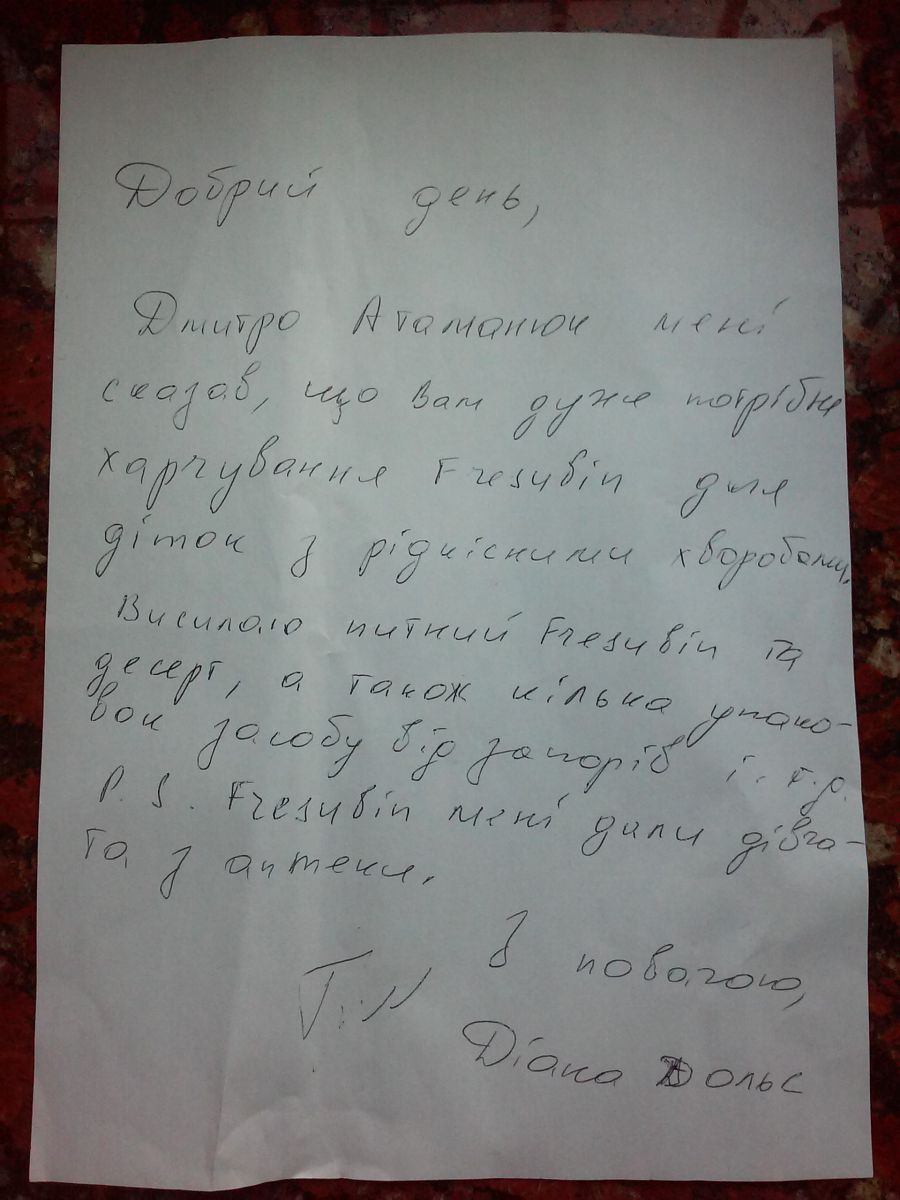 Добрий день,
Дмитро Атаманюк мені
сказав, що вам дуже потрібне
харчування Fresubin для
діток з рідкісними хворобами.
Висилаю питний Fresubin та
десерт, а також кілька упако-
вок засобу від запорів і. т.д.
P.S. Fresubin мені дали дівча-
та з аптеки.
З повагою,
Діана Дольс